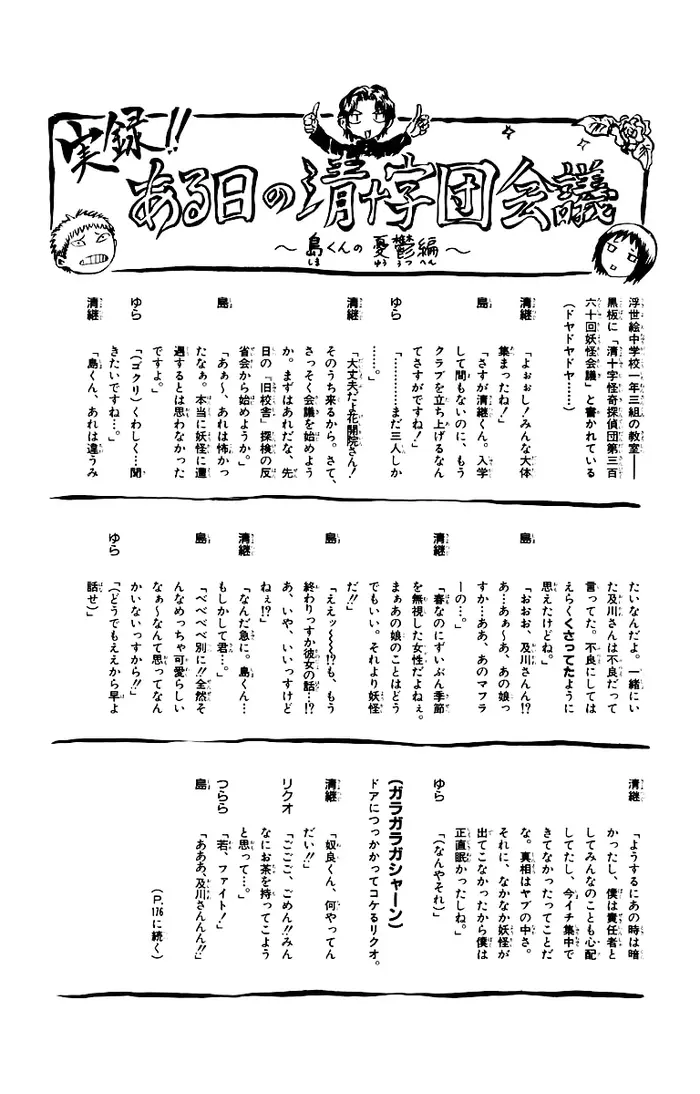 実録!!
ある日の清十字団会議
～島くんの憂鬱編～
しま
ゆううつへん
浮世絵中学校一年三組の教室――
黒板に「清十字怪奇探偵団第三百
六十回妖怪会議」と書かれている
（ドヤドヤドヤ……）
清継「よぉぉし！みんな大体
集まったね！」
島「さすが清継くん。入学
して間もないのに、もう
クラブを立ち上げるなん
てさすがですね！」
ゆら「…………まだ三人しか
……。」
清継「大丈夫だよ花開院さん！
そのうち来るから。さて、
さっそく会議を始めよう
か。まずはあれだな、先
日の「旧校舎」探検の反
省会から始めようか。」
島「あぁ～、あれは怖かっ
たなぁ。本当に妖怪に遭
遇するとは思わなかった
ですよ。」
ゆら「（ゴクリ）くわしく…聞
きたいですね…。」
清継「島くん、あれは違うみ
たいなんだよ。一緒にい
た及川さんは不良だって
言ってた。不良にしては
えらくくさってたように
思えたけどね。」
島「おおお、及川さんん!?
あ…あぁ～あ、あの娘っ
すか…ああ、あのマフラ
ーの…。」
清継「春なのにずいぶん季節
を無視した女性だよねぇ。
まぁあの娘のことはどう
でもいい。それより妖怪
だ!!」
島「ええッ～～～!?も、もう
終わりっすか彼女の話…!?
あ、いや、いいっすけど
ねぇ!?」
清継「なんだ急に。島くん…
もしかして君…。」
島「べべべべ別に!!全然そ
んなめっちゃ可愛らしい
なぁ～なんて思ってなん
かいないっすから!!」
ゆら「（どうでもええから早よ
話せ）」
清継「ようするにあの時は暗
かったし、僕は責任者と
してみんなのことも心配
してたし、今イチ集中で
きてなかったってことだ
な。真相はヤブの中さ。
それに、なかなか妖怪が
出てこなかったから僕は
正直眠かったしね。」
ゆら「（なんやそれ）」
（ガラガラガシャーン）
ドアにつっかかってコケるリクオ。
清継「奴良くん、何やってん
だい!!」
リクオ「ごごご、ごめん!!みん
なにお茶を持ってこよう
と思って…。」
つらら「若、ファイト！」
島「あああ、及川さんんん!!」
（P.176に続く）